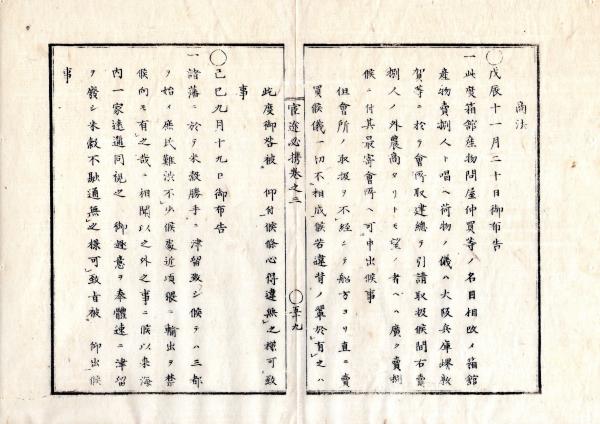 商法
○戊辰十一月二十日御布告
一此度箱館産物問屋仲買等ノ名目相改メ箱館
産物賣捌人ト唱ヘ荷物ノ儀ハ大阪兵庫堺敦
賀等ニ於テ會所取建總テ引請取扱候間右賣
捌人ノ外農商タリトモ望ノ者ヘハ廣ク賣捌
候ニ付其最寄會所ヘ可申出候事
但會所ノ取扱ヲ不經シテ船方ヨリ直ニ賣
買候儀一切不相成候若違背ノ輩於有之ハ
官途必携巻之二
○五十九
此度御咎被 仰付候條心得違無之様可致
事
○己巳九月十九日御布告
一諸藩ニ於テ米穀勝手ニ津留致シ候テハ三都
ヲ始メ庶民難渋不少候處近頃猥ニ輸出ヲ禁
候向モ有之哉ニ相聞以之外之事ニ候以来海
内一家遠邇同視之 御趣意ヲ奉體速ニ津留
ヲ廢シ米穀不融通無之様可致旨被 仰出候
事